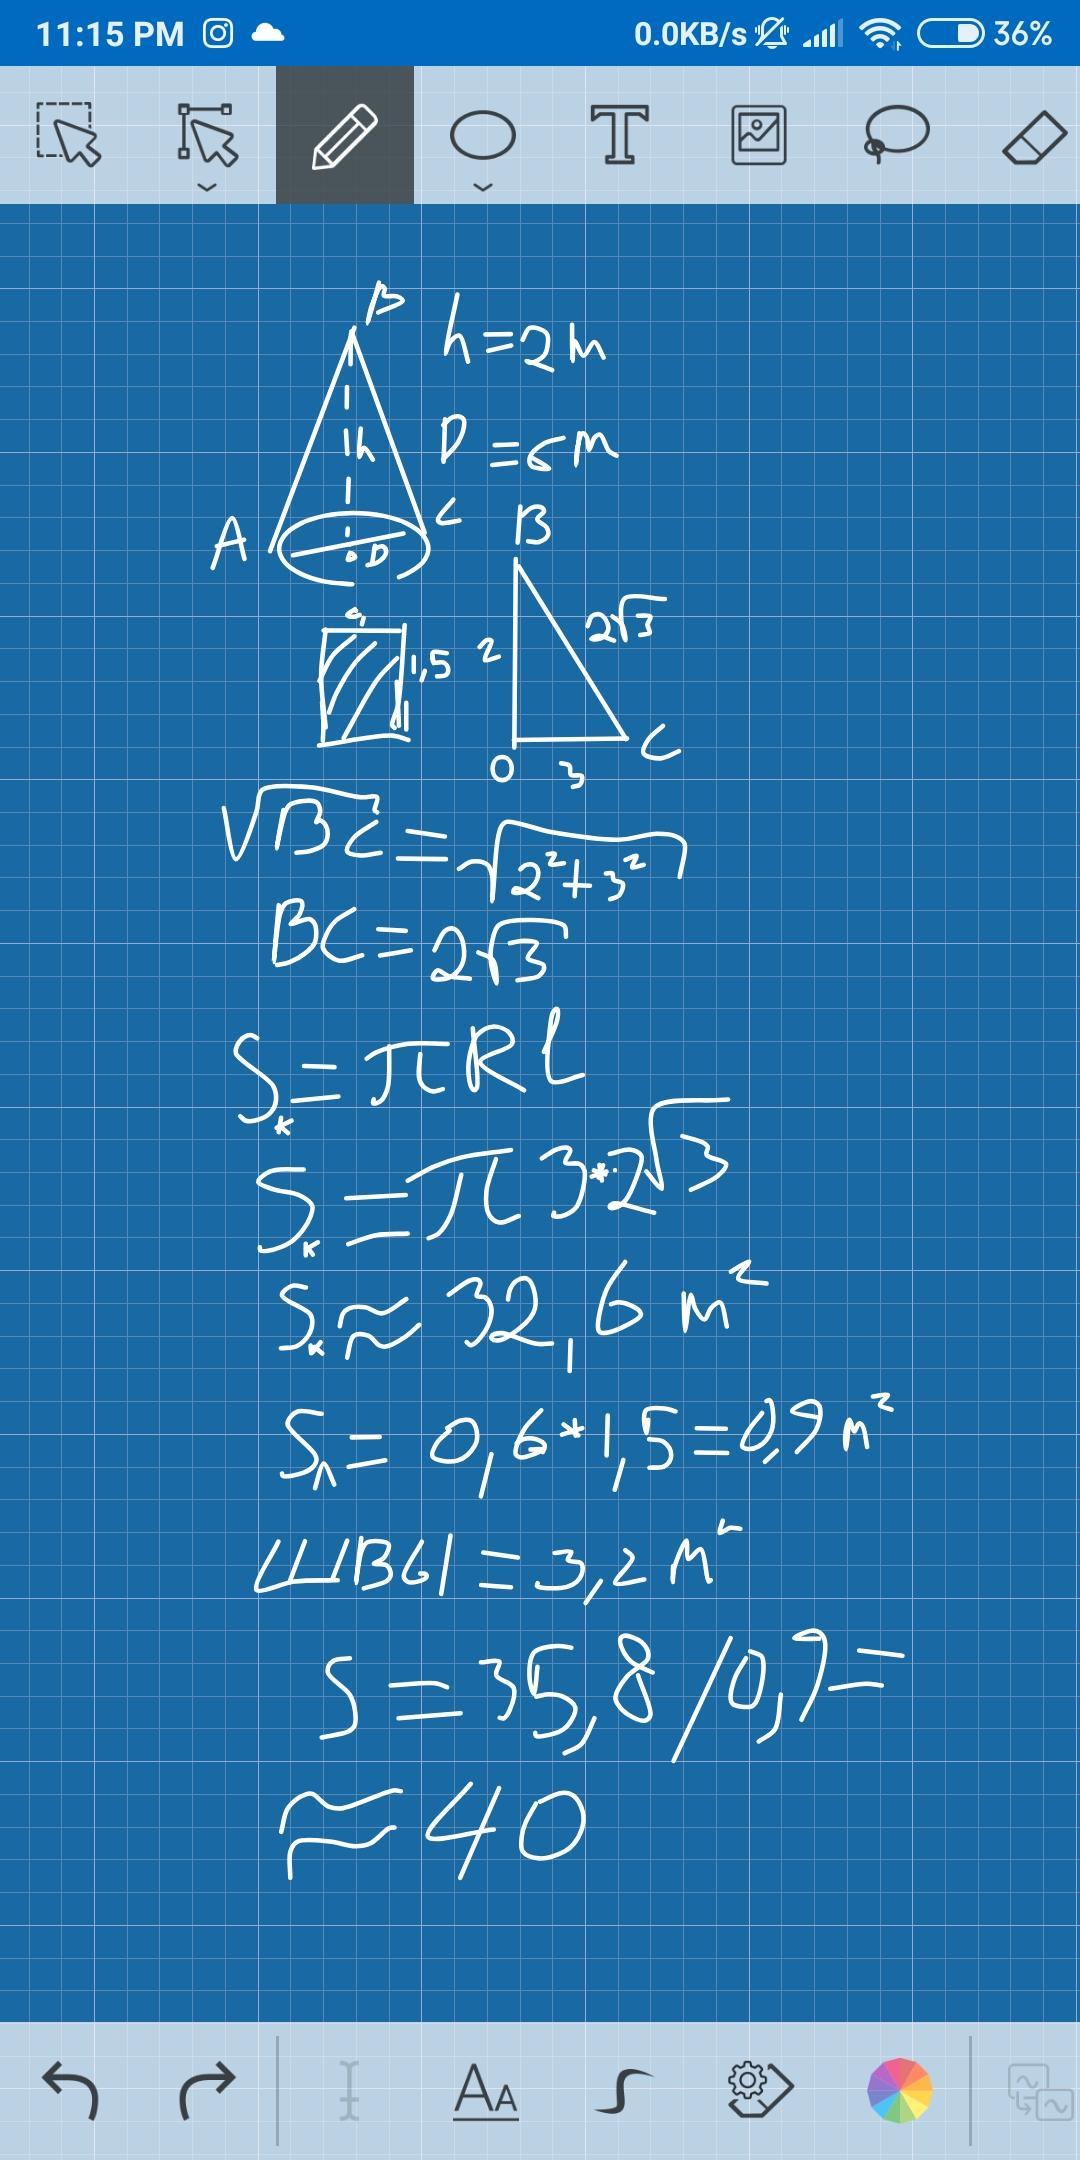 11:15 PM 0.0KB/s 36%
T
B
h=2м
h
D=6м
A
C
D
B
1,5
2
2√3
O
3
C
√BC=√2²+3²
BC=2√3
Sк=πRL
Sк=π3*2√3
Sк≈32,6 м²
Sл=0,6*1,5=0,9 м²
ШВЫ=3,2 м²
S=35,8/0,9=
≈40
AA